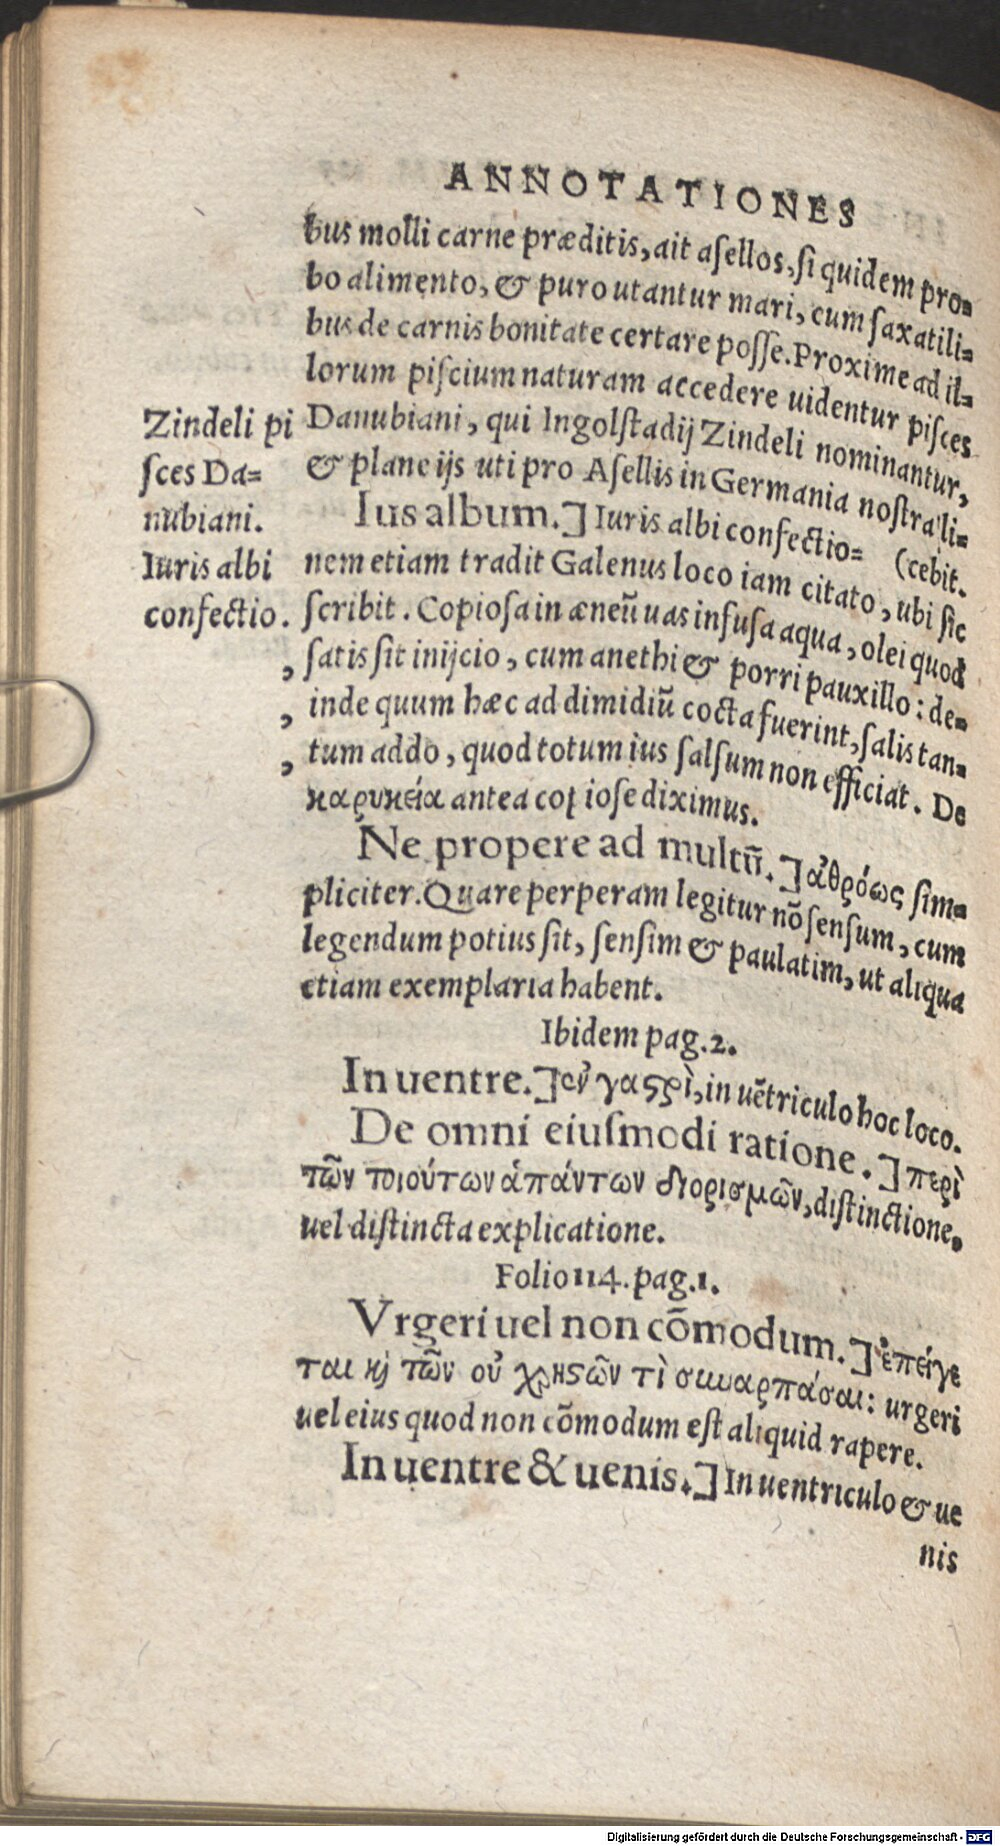 ANNOTATIONES
bus molli carne præditis, ait asellos, si quidem pro=
bo alimento, & puro utantur mari, cum saxatili=
bus de carnis bonitate certare posse. Proxime ad il=
lorum piscium naturam accedere uidentur pisces
Danubiani, qui Ingolstadij Zindeli nominantur,
& planc ijs uti pro Asellis in Germania nostra li=
Zindeli pi
sces Da=
nubiani.
Ius album.] Iuris albi confectio= (cebit.
nem etiam tradit Galenus loco iam citato, ubi sic
Iuris albi
confectio.
scribit. Copiosa in æneũ uas infusa aqua, olei quod
, satis sit inijcio, cum anethi & porri pauxillo: de=
, inde quum hæc ad dimidiũ cocta fuerint, salis tan=
, tum addo, quod totum ius salsum non efficiat. De
καρυκείᾳ antea copiose diximus.
Ne propere ad multũ.] ἀθρόως sim=
pliciter. Quare perperam legitur nõ sensum, cum
legendum potius sit, sensim & paulatim, ut aliqua
etiam exemplaria habent.
Ibidem pag. 2.
In uentre.] ἐν γαστρὶ, in uẽtriculo hoc loco.
De omni eiusmodi ratione.] περὶ
τῶν τοιούτων ἁπάντων διορισμῶν, distinctione,
uel distincta explicatione.
Folio 114. pag. 1.
Vrgeri uel non cõmodum.] ἐπείγε
ται καὶ τῶν οὐ χρηστῶν τὶ συναρπάσαι: urgeri
uel eius quod non cõmodum est aliquid rapere.
In uentre & uenis.] In uentriculo & ue
nis
Digitalisierung gefördert durch die Deutsche Forschungsgemeinschaft - DFG